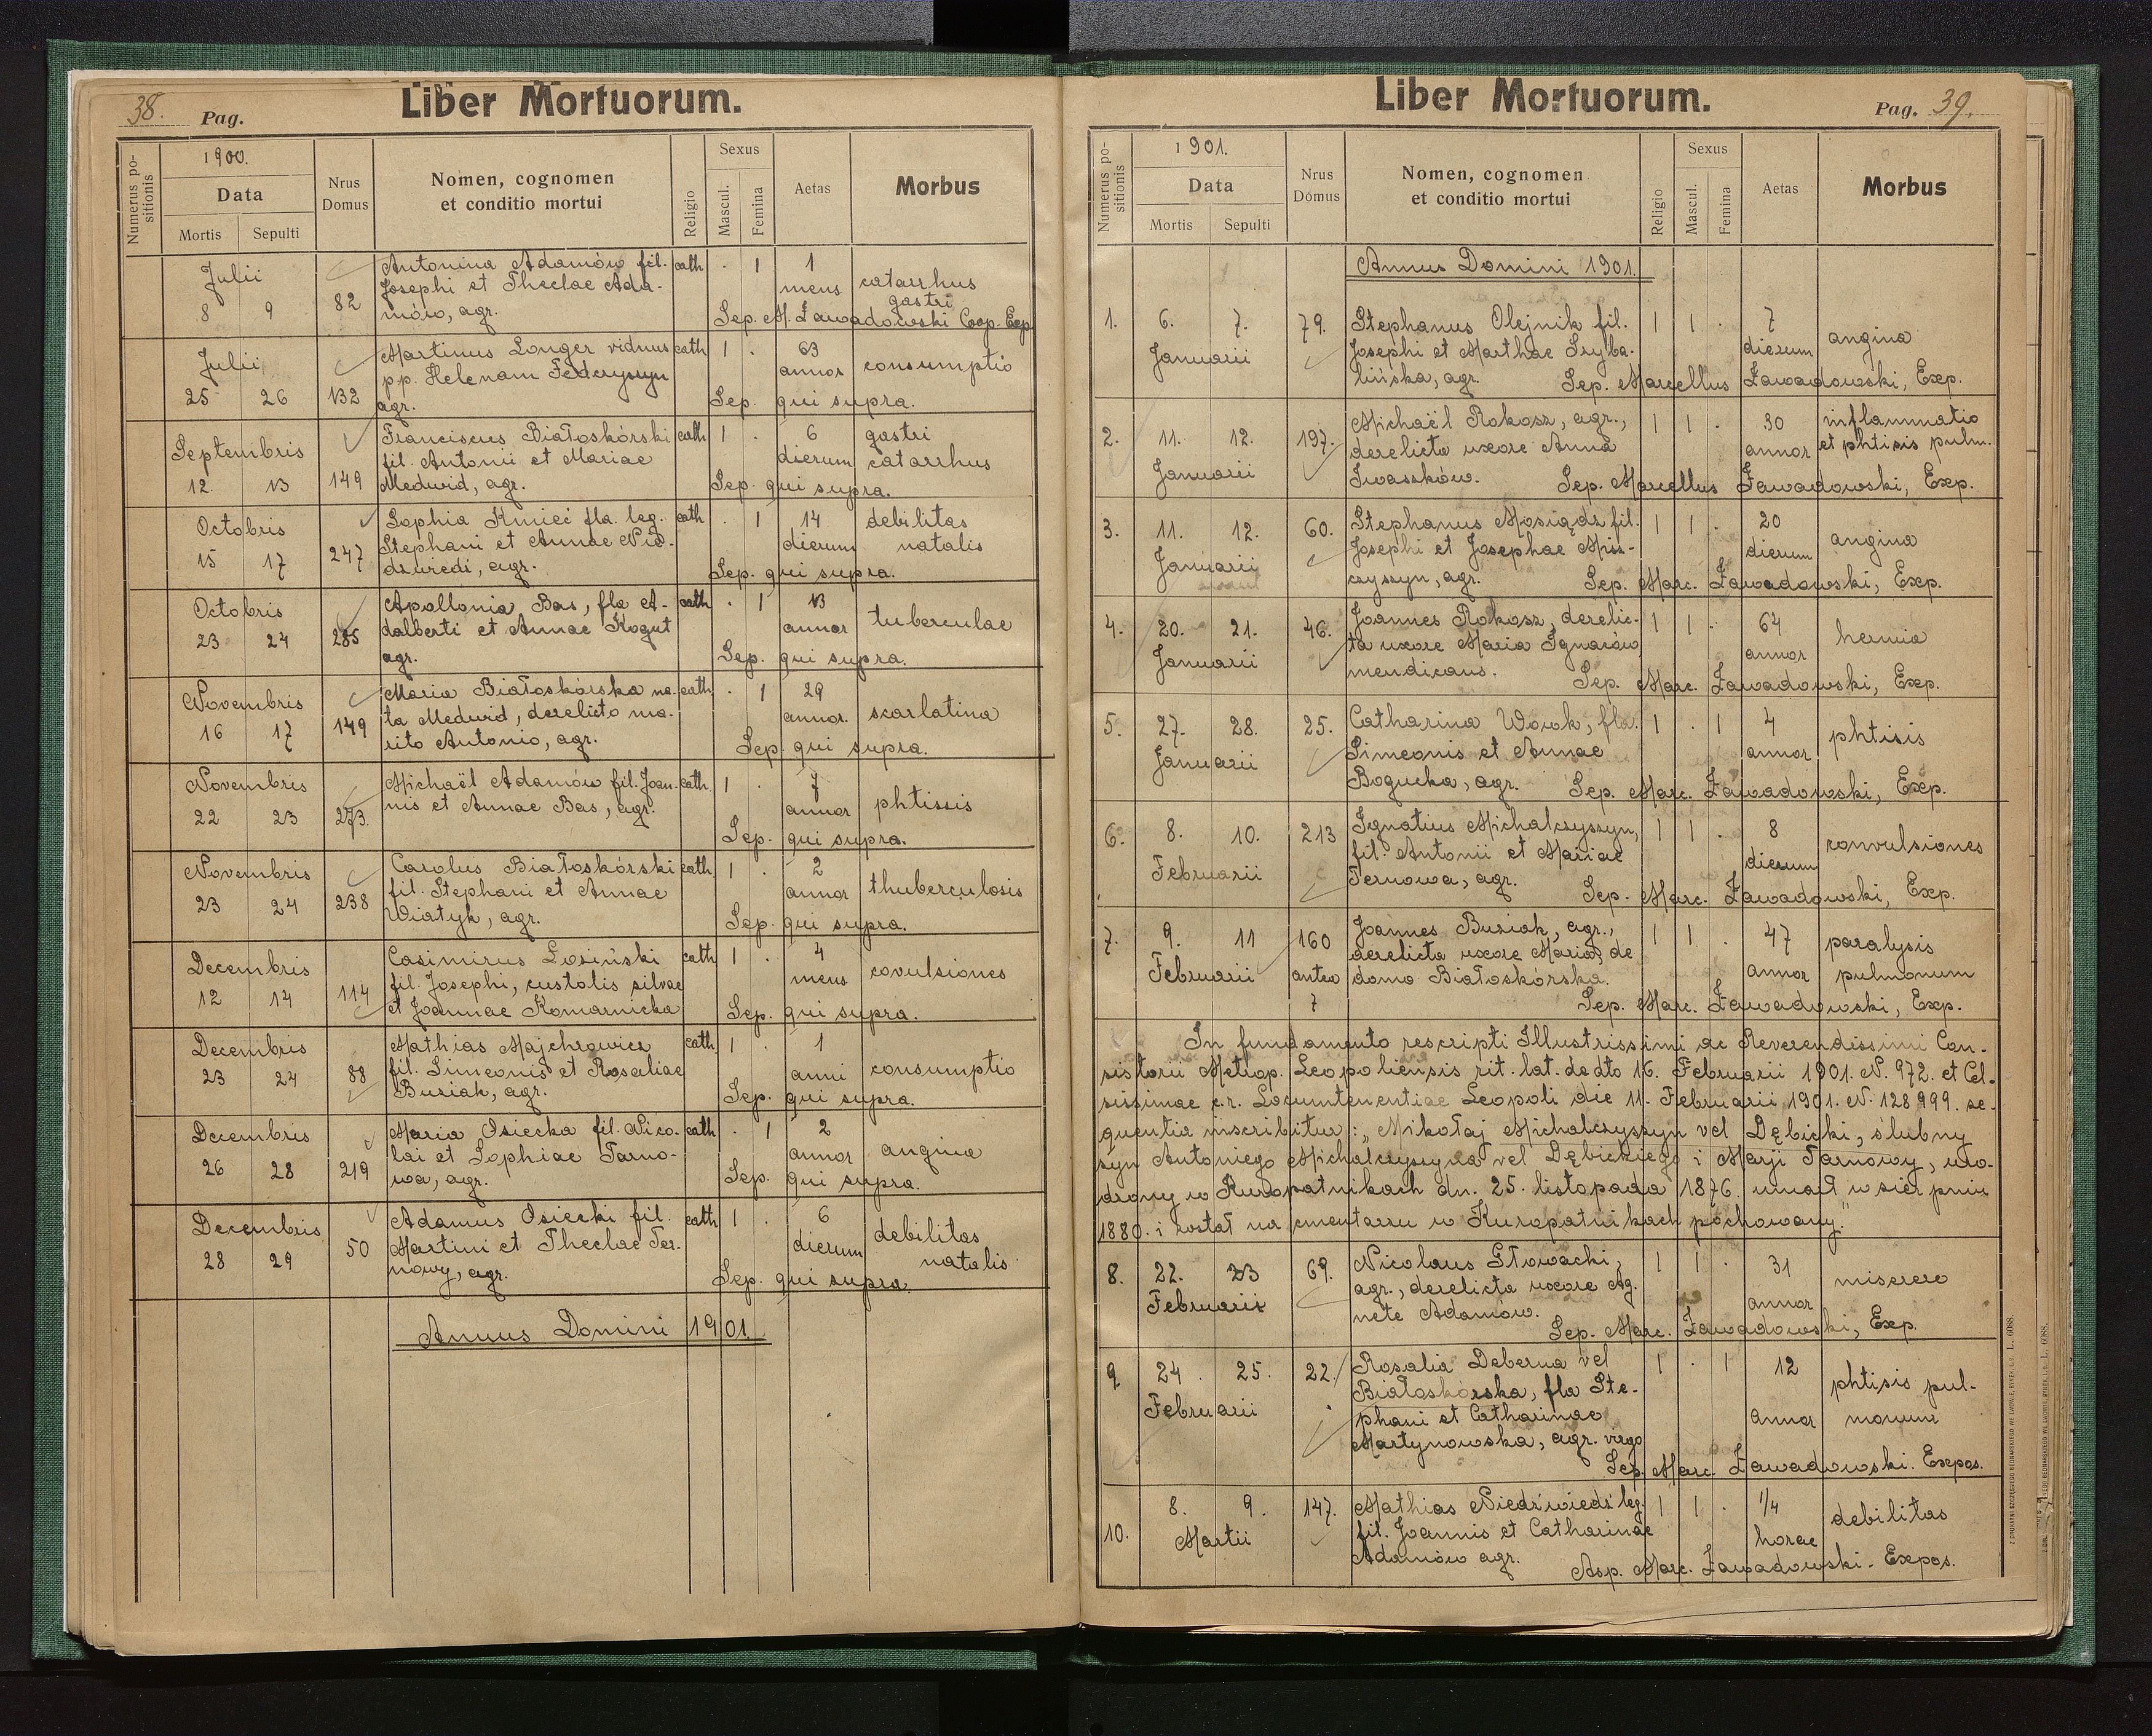 38. Pag.
Liber Mortuorum.
Numerus positionis
1900.
Data
Mortis Sepulti
Nrus Domus
Nomen, cognomen
et conditio mortui
Religio
Sexus
Mascul. Femina
Aetas
Morbus
Julii
8 9 82
Antonina Adamów fil.
Josephi et Theclae Ada-
mów, agr.
cath . 1 1 mens catarrhus gastri
Sep. M. Zawadowski Coop. Exp.
Julii
25 26 132
Martinus Longer viduus
p.p. Helenam Federyszyn
agr.
cath 1 . 63 annor consumptio
Sep. qui supra.
Septembris
12. 13 149
Franciscus Białoskórski
fil. Antonii et Mariae
Medwid, agr.
cath 1 . 6 dierum gastri catarrhus
Sep. qui supra.
Octobris
15 17 247
Sophia Kmieć fla. leg.
Stephani et Annae Nie-
dzwiedź, agr.
cath . 1 14 dierum debilitas natalis
Sep. qui supra.
Octobris
23 24 285
Apollonia Bas, fla A-
dalberti et Annae Kogut
agr.
cath . 1 13 annor tuberculae
Sep. qui supra.
Novembris
16 17 149
Maria Białoskórska na-
ta Medwid, derelicto ma-
rito Antonio, agr.
cath. . 1 29 annor. scarlatina
Sep. qui supra.
Novembris
22 23 273.
Michaël Adamów fil. Joan-
nis et Annae Bas, agr.
cath. 1 . 7 annor phtissis
Sep. qui supra.
Novembris
23 24 238
Carolus Białoskórski
fil. Stephani et Annae
Wiatyk, agr.
cath. 1 . 2 annor thuberculosis
Sep. qui supra.
Decembris
12 14 114
Casimirus Łosiński
fil. Josephi, custolis silvae
et Joannae Komarnicka
cath 1 . 4 mens covulsiones
Sep. qui supra.
Decembris
23 24 88
Mathias Majchrowicz
fil. Simeonis et Rosaliae
Busiak, agr.
cath. 1 . 1 anni consumptio
Sep. qui supra.
Decembris
26 28 219
Maria Osiecka fil. Nico-
lai et Sophiae Tarno-
wa, agr.
cath . 1 2 annor angina
Sep. qui supra.
Decembris
28 29 50
Adamus Osiecki fil.
Martini et Theclae Ter-
nowy, agr.
cath 1 . 6 dierum debilitas natalis
Sep. qui supra.
Annus Domini 1901.
Liber Mortuorum.
Pag. 39.
Numerus positionis
1901.
Data
Mortis Sepulti
Nrus Domus
Nomen, cognomen
et conditio mortui
Religio
Sexus
Mascul. Femina
Aetas
Morbus
Annus Domini 1901.
1. 6. 7. 79.
Januarii
Stephanus Olejnik fil.
Josephi et Marthae Szyba-
lińska, agr.
1 1 . 7 dierum angina
Sep. Marcellus Zawadowski, Exp.
2. 11. 12. 197.
Januarii
Michaël Rokosz, agr.,
derelicta uxore Anna
Iwasków.
1 1 . 30 annor inflammatio
et phtisis pulm.
Sep. Marcellus Zawadowski, Exp.
3. 11. 12. 60.
Januarii
Stephanus Mosiądz fil.
Josephi et Josephae Misz-
czyszyn, agr.
1 1 . 20 dierum angina
Sep. Marc. Zawadowski, Exp.
4. 20. 21. 46.
Januarii
Joannes Rokosz, derelic-
ta uxore Maria Ignaców
mendicans.
1 1 . 64 annor hernia
Sep. Marc. Zawadowski, Exp.
5. 27. 28. 25.
Januarii
Catharina Wowk, fla.
Simeonis et Annae
Bogucka, agr.
1 . 1 4 annor phtisis
Sep. Marc. Zawadowski, Exp.
6. 8. 10. 213
Februarii
Ignatius Michalczyszyn,
fil. Antonii et Mariae
Ternowa, agr.
1 1 . 8 dierum convulsiones
Sep. Marc. Zawadowski, Exp.
7. 9. 11 160
Februarii antea 7
Joannes Busiak, agr.,
derelicta uxore Maria de
domo Białoskórska.
1 1 . 47 annor paralysis pulmonum
Sep. Marc. Zawadowski, Exp.
In fundamento rescripti Illustrissimi ac Reverendissimi Con-
sistorii Metrop. Leopoliensis rit. lat. de dto 16. Februarii 1901. N. 972. et Cel-
sissimae c.r. Locumtenentiae Leopoli die 11. Februarii 1901. N. 128999. se-
quentia inscribitur: „Mikołaj Michalczyszyn vel Dębicki, ślubny
syn Antoniego Michalczyszyna vel Dębickiego i Marji Tarnowy, uro-
dzony w Kuropatnikach dn. 25. listopada 1876. umarł w sierpniu
1880. i został na cmentarzu w Kuropatnikach pochowany."
8. 22. 23 69.
Februarii
Nicolaus Głowacki,
agr., derelicta uxore Ag-
nete Adamów.
1 1 . 31 annor miserere
Sep. Marc. Zawadowski, Exp.
9 24. 25. 22.
Februarii
Rosalia Deberna vel
Białoskórska, fla Ste-
phani et Catharinae
Martynowska, agr. virgo
1 . 1 12 annor phtisis pul-
monum
Sep. Marc. Zawadowski. Expos.
10. 8. 9. 147.
Martii
Mathias Niedźwiedź leg.
fil. Joannis et Catharinae
Adamów agr.
1 1 . 1/4 horae debilitas
Asp. Marc. Zawadowski. Expos.